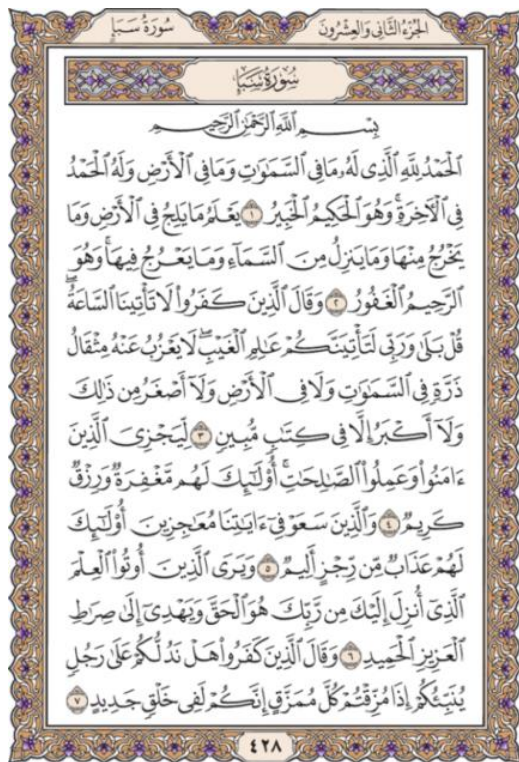 الجزء الثاني والعشرون سورة سبإ
سورة سبإ
بسم الله الرحمن الرحيم
ٱلۡحَمۡدُ لِلَّهِ ٱلَّذِي لَهُۥ مَا فِي ٱلسَّمَٰوَٰتِ وَمَا فِي ٱلۡأَرۡضِ وَلَهُ ٱلۡحَمۡدُ
فِي ٱلۡأٓخِرَةِۚ وَهُوَ ٱلۡحَكِيمُ ٱلۡخَبِيرُ ١ يَعۡلَمُ مَا يَلِجُ فِي ٱلۡأَرۡضِ وَمَا
يَخۡرُجُ مِنۡهَا وَمَا يَنزِلُ مِنَ ٱلسَّمَآءِ وَمَا يَعۡرُجُ فِيهَاۚ وَهُوَ
ٱلرَّحِيمُ ٱلۡغَفُورُ ٢ وَقَالَ ٱلَّذِينَ كَفَرُواْ لَا تَأۡتِينَا ٱلسَّاعَةُۖ
قُلۡ بَلَىٰ وَرَبِّي لَتَأۡتِيَنَّكُمۡ عَٰلِمِ ٱلۡغَيۡبِۖ لَا يَعۡزُبُ عَنۡهُ مِثۡقَالُ
ذَرَّةٖ فِي ٱلسَّمَٰوَٰتِ وَلَا فِي ٱلۡأَرۡضِ وَلَآ أَصۡغَرُ مِن ذَٰلِكَ
وَلَآ أَكۡبَرُ إِلَّا فِي كِتَٰبٖ مُّبِينٖ ٣ لِّيَجۡزِيَ ٱلَّذِينَ
ءَامَنُواْ وَعَمِلُواْ ٱلصَّٰلِحَٰتِۚ أُوْلَٰٓئِكَ لَهُم مَّغۡفِرَةٞ وَرِزۡقٞ
كَرِيمٞ ٤ وَٱلَّذِينَ سَعَوۡ فِيٓ ءَايَٰتِنَا مُعَٰجِزِينَ أُوْلَٰٓئِكَ
لَهُمۡ عَذَابٞ مِّن رِّجۡزٍ أَلِيمٞ ٥ وَيَرَى ٱلَّذِينَ أُوتُواْ ٱلۡعِلۡمَ
ٱلَّذِيٓ أُنزِلَ إِلَيۡكَ مِن رَّبِّكَ هُوَ ٱلۡحَقَّ وَيَهۡدِيٓ إِلَىٰ صِرَٰطِ
ٱلۡعَزِيزِ ٱلۡحَمِيدِ ٦ وَقَالَ ٱلَّذِينَ كَفَرُواْ هَلۡ نَدُلُّكُمۡ عَلَىٰ رَجُلٖ
يُنَبِّئُكُمۡ إِذَا مُزِّقۡتُمۡ كُلَّ مُمَزَّقٍ إِنَّكُمۡ لَفِي خَلۡقٖ جَدِيدٍ ٧
٤٢٨